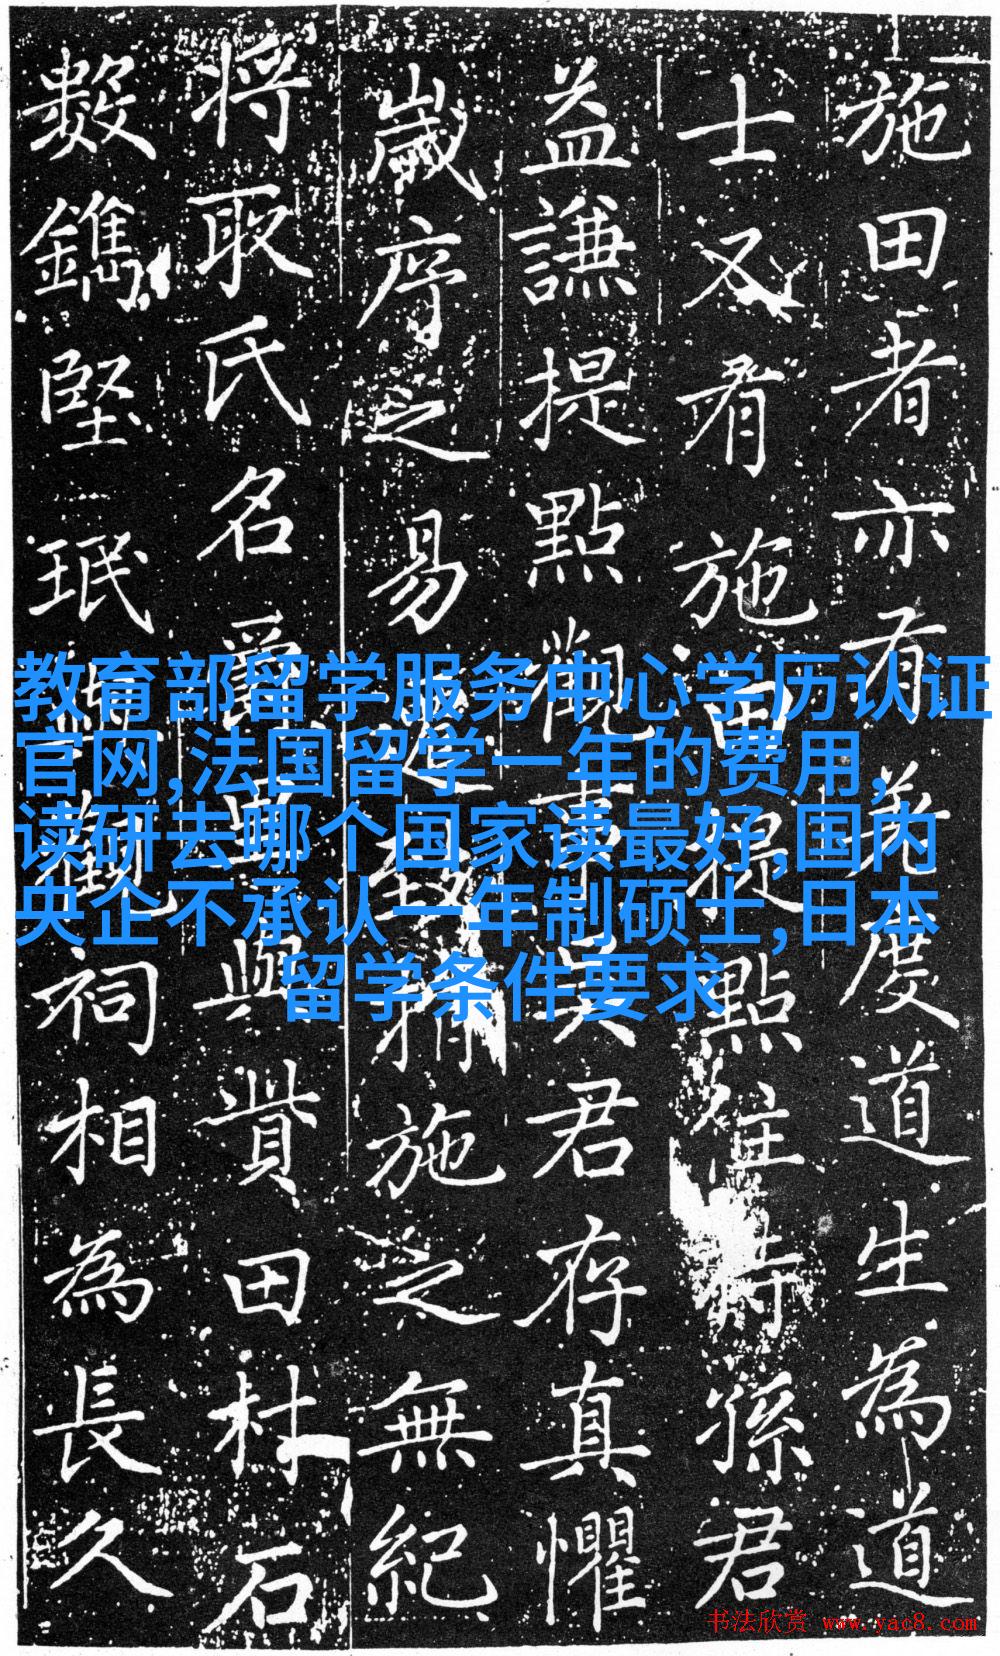 施田者亦有度道生為道
士又有施田提點住持孫君
益謙提點觀事吳君存真懼
歲序之易施之無紀
将取氏名爵里與貲田杜石
數鐫堅珉與觀祠相為長久
教育部留学服务中心学历认证
官网,法国留学一年的费用,
读研去哪个国家读最好,国内
央企不承认一年制硕士,日本
留学条件要求
书法欣赏 www.yac8.com